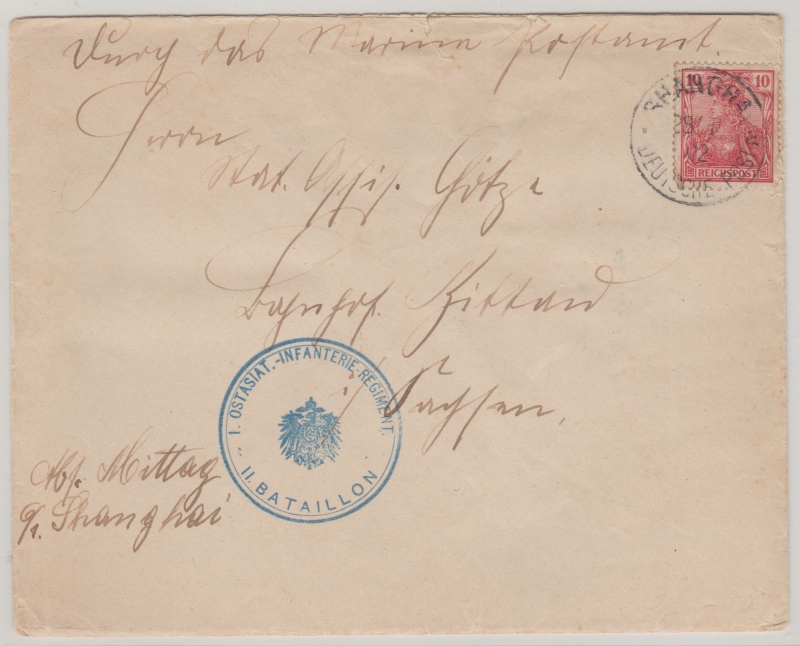 Durch das Marine Postamt.
10 10
REICHSPOST
SHANGHAI
DEUTSCHE POST
Herrn
Stat. Assis. Götze
Bahnhof. Zittau
i/ Sachsen.
I. OSTASIAT.-INFANTERIE-REGIMENT.
II. BATAILLON
Abs. Mittag
Shanghai